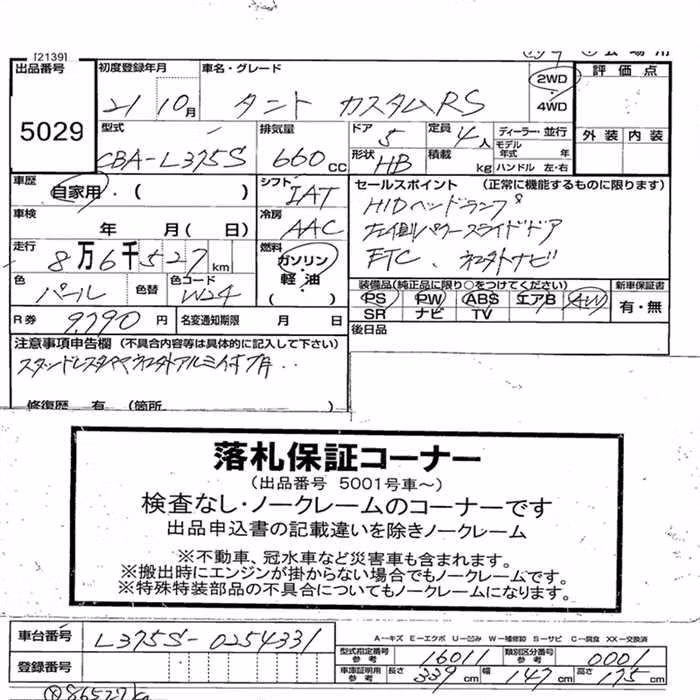 [2139]
出品番号
5029
初度登録年月
21 10月
車名・グレード
タント カスタムRS
2WD
・
4WD
評価点
外装 内装
型式
CBA-L375S
排気量
660cc
ドア
5
定員
4人
形状
HB
積載
kg
ディーラー・並行
モデル年式 年
ハンドル 左・右
車歴
自家用・( )
車検
年 月(日)
走行
8万6千527km
色
パール
色替
色コード
W24
シフト
IAT
冷房
AAC
燃料
ガソリン
・
軽油
セールスポイント (正常に機能するものに限ります)
HIDヘッドランプ
左側パワースライドドア
ETC、社外ナビ
装備品(純正品に限り○をつけてください)
PS PW ABS エアB AW
SR ナビ TV
新車保証書
有・無
R券
9,790円
名変通知期限 月 日
後日品
注意事項申告欄 (不具合内容等は具体的に記入して下さい)
スタッドレスタイヤ社外アルミ付
修復歴 有 (箇所
落札保証コーナー
(出品番号 5001号車~)
検査なし・ノークレームのコーナーです
出品申込書の記載違いを除きノークレーム
※不動車、冠水車など災害車も含まれます。
※搬出時にエンジンが掛からない場合でもノークレームです。
※特殊特装部品の不具合についてもノークレームになります。
A-キズ E-エクボ U-凹み W-補修跡 S-サビ C-腐食 XX-交換済
車台番号
L375S-0254331
型式指定番号
参考
16011
類別区分番号
参考
0001
登録番号
車庫証明用
参考
長さ 339cm 幅 147cm 高さ 175cm
86527